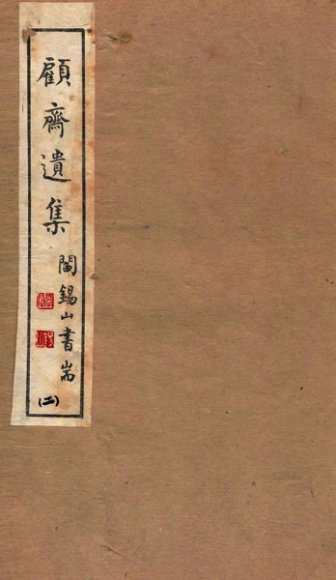 顧齋遺集
閻錫山書耑
(二)